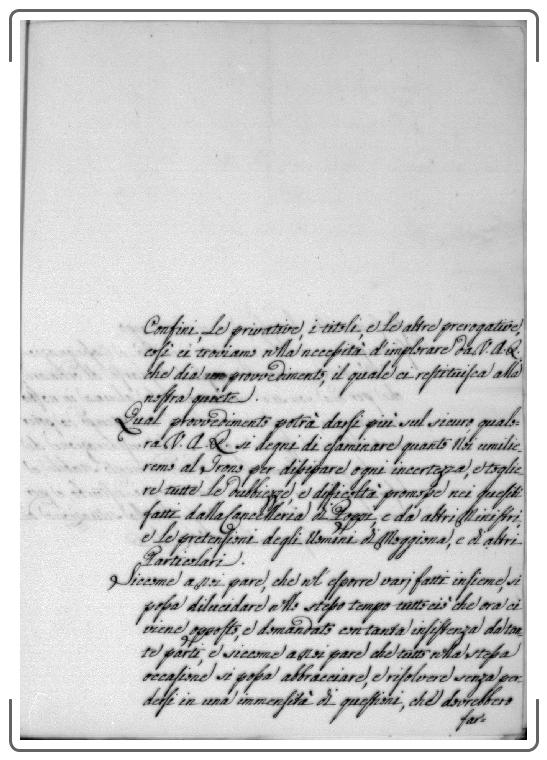 Confini, le privative, i titoli, e le altre prerogative,
così ci troviamo nella necessità d'implorare da V. A. R.
che dia un provvedimento, il quale ci restituisca alla
nostra quiete.
Qual provvedimento potrà darsi più sul sicuro, qualo-
ra V. A. R. si degni di esaminare quanto Noi umilie-
remo al Trono per dissipare ogni incertezza, e toglie
re tutte le dubbiezze, e difficoltà promosse nei quesiti
fatti dalla Cancelleria di Poppi, e da altri Ministri,
e le pretensioni degli Uomini di Moggiona, e di altri
Particolari.
Siccome a noi pare, che nel esporre varj fatti insieme, si
possa dilucidare nello stesso tempo tutto ciò che ora ci
viene opposto, e domandato con tanta insistenza da tan
te parti, e siccome a noi pare che tutto nella stessa
occasione si possa abbracciare, e risolvere senza per
dersi in una immensità di questioni, che dovrebbero
far-